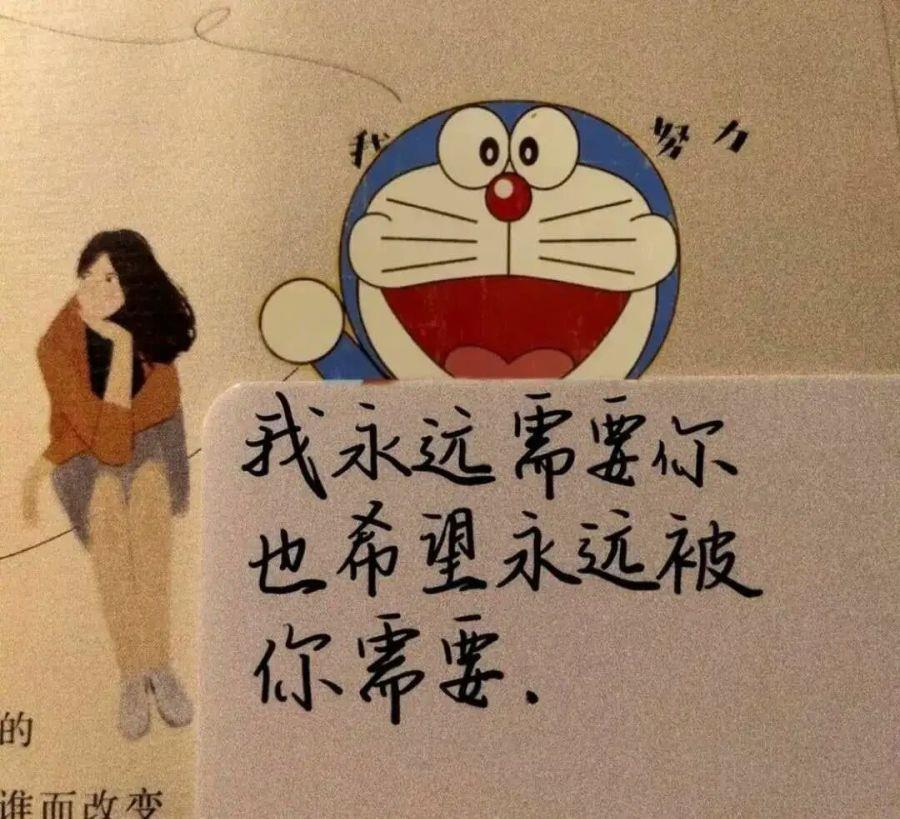 我 努力
我永远需要你
也希望永远被
你需要.
的
谁而改变